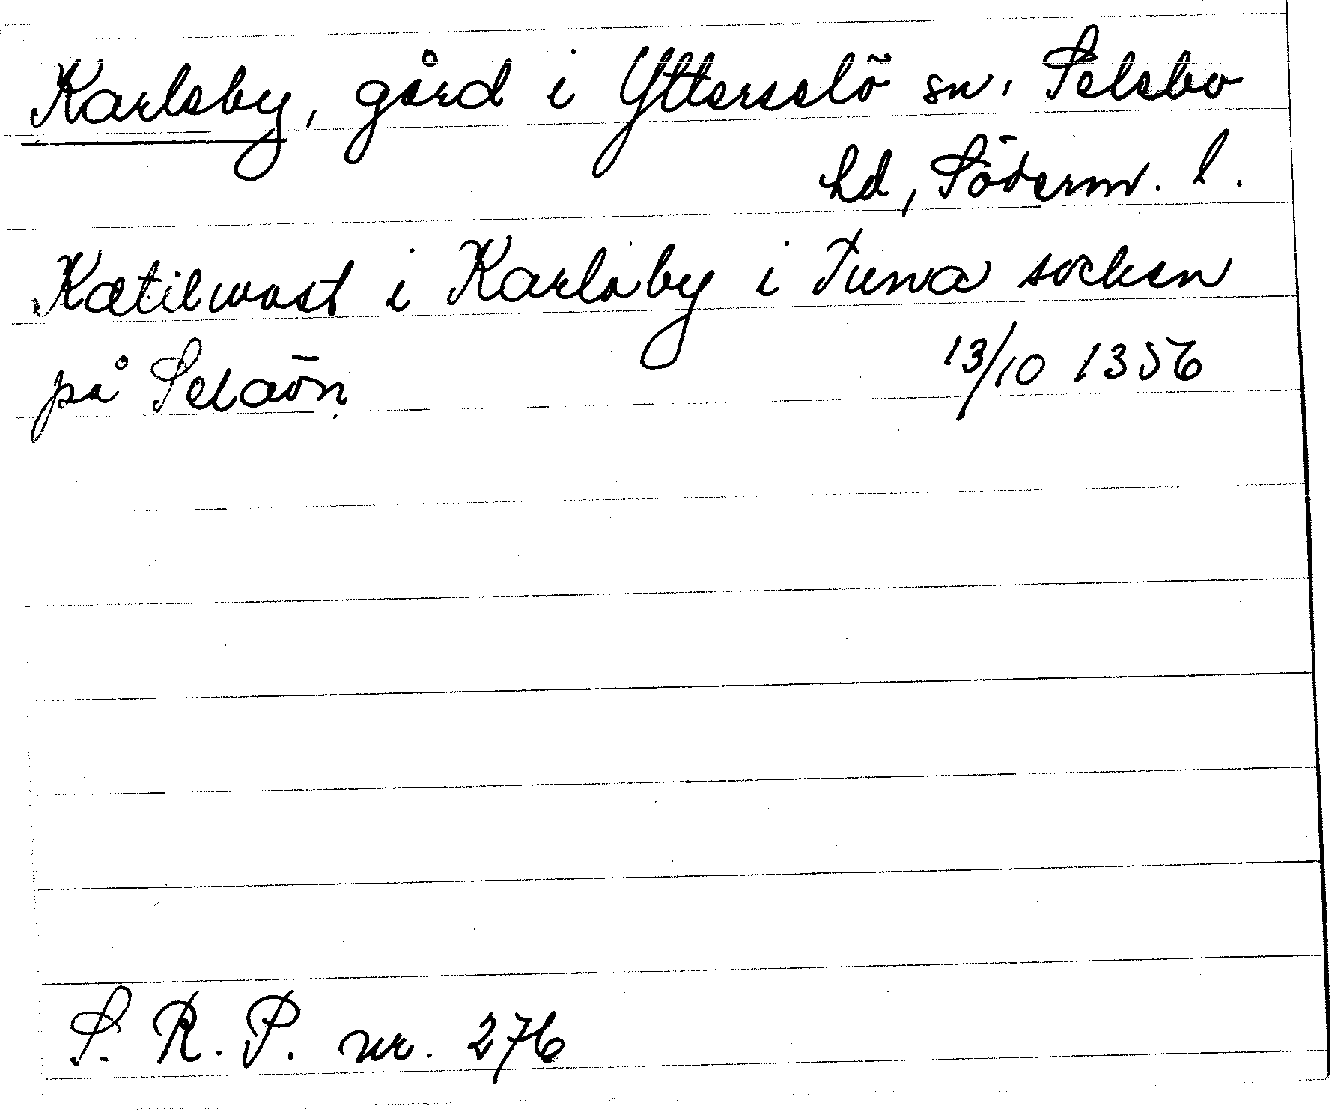 Karlsby, gård i Ytterselö sn, Selebo
hd, Söderm. l.
Kætilwast i Karlsby i Tuna socken
på Selaön 13/10 1356
S. R. P. nr. 276